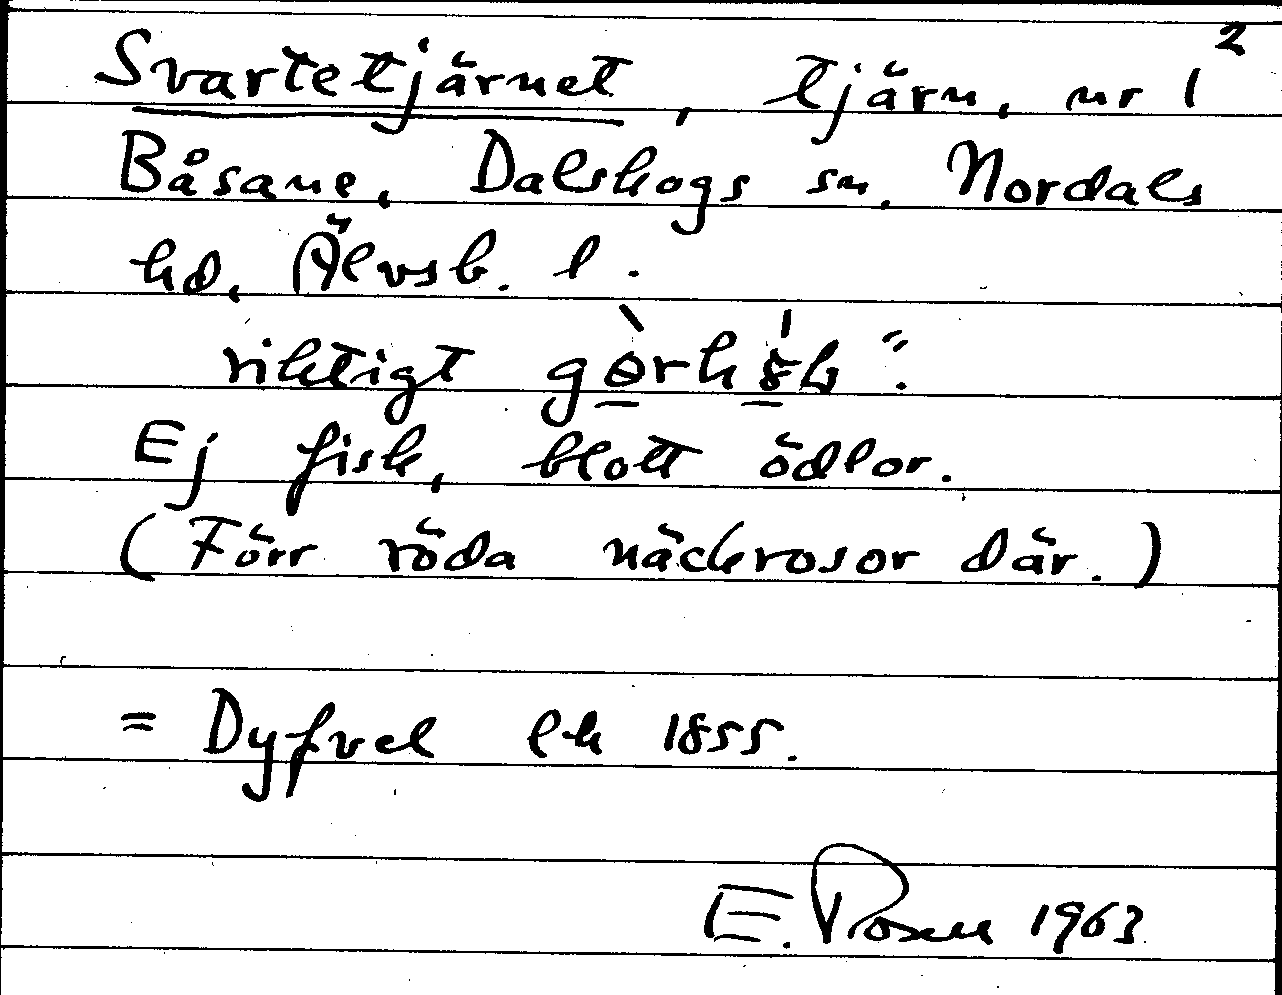 Svartetjärnet, tjärn, nr 1²
Båsane, Dalskogs sn. Nordals
hd, Älvsb. l.
riktigt
Ej fisk, blott ödlor.
(Förr röda näckrosor där.)
= Dyfvel ek 1855.
E. Rosell 1963